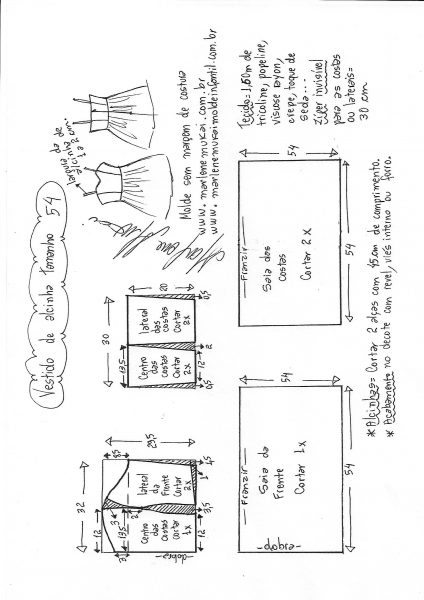 Vestido de alcinha tamanho 54
largura da
alcinha de
1 a 2 cm...
Molde sem margem de costura
www.marlenemukai.com.br
www.marlenemukaimoldeinfantil.com.br
Tecido = 1,60m de
tricoline, popeline,
viscose rayon,
crepe, toque de
seda...
Zíper invisível
para as costas
ou laterais =
30 cm
32
29,5
8,5
12
3
3
13,5
2
Centro
das
costas
cortar
1x
lateral
da
Frente
Cortar
2x
dobra
12
3,5
1
4,5
30
20
13,5
Centro
das
costas
cortar
2x
lateral
das
costas
Cortar
2x
0,5
12
2
0,5
54
Franzir
Saia da
Frente
Cortar 1x
dobra
54
54
Franzir
Saia das
costas
Cortar 2x
54
* Alcinhas = Cortar 2 alças com 45cm de comprimento.
* Acabamento no decote com revel, viés interno ou forro.